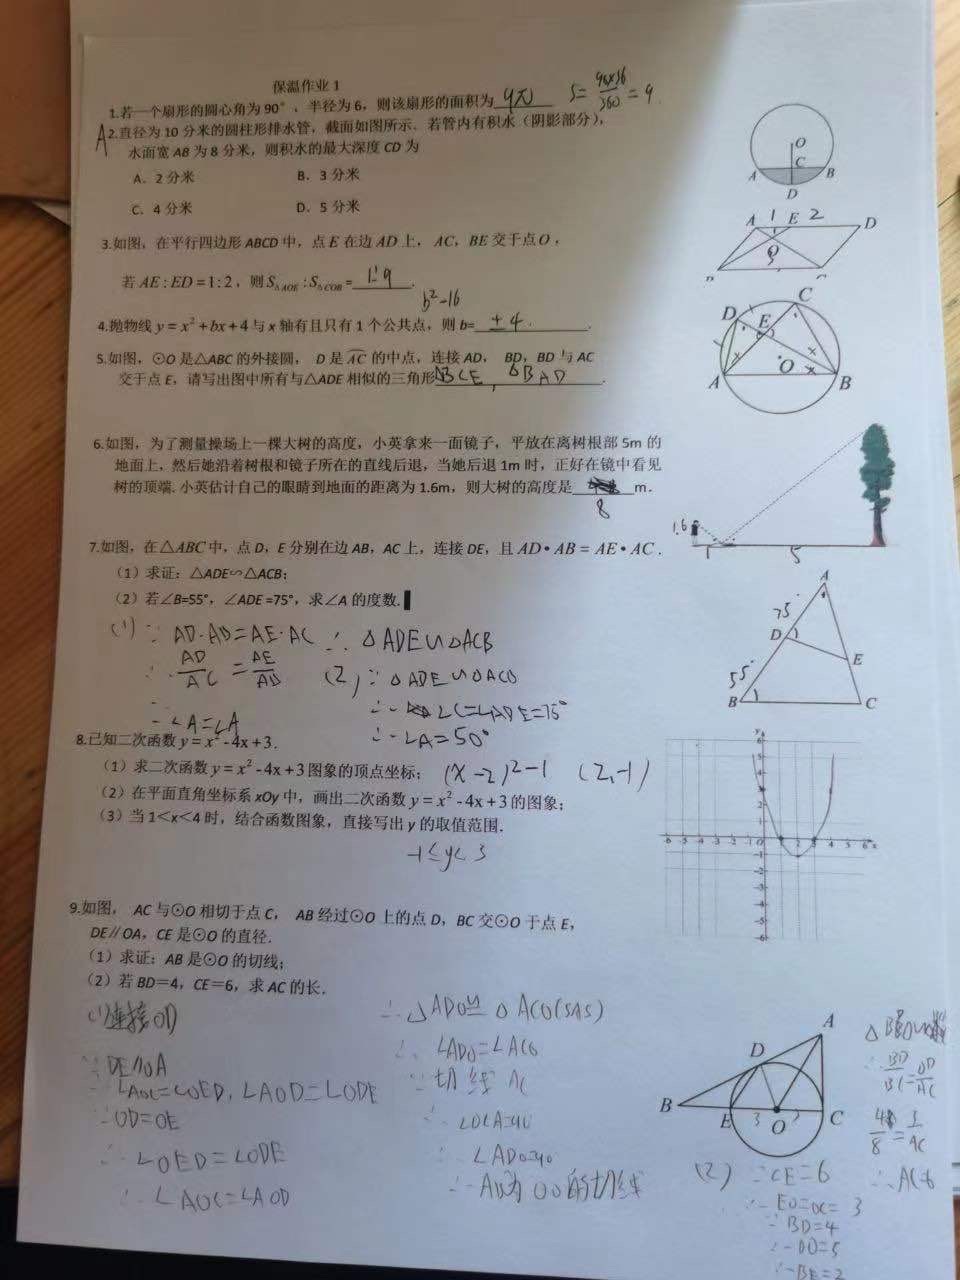 保温作业1
1.若一个扇形的圆心角为90°，半径为6，则该扇形的面积为 9π . S= 90×36/360 = 9
A
2.直径为10分米的圆柱形排水管，截面如图所示. 若管内有积水（阴影部分），
水面宽AB为8分米，则积水的最大深度CD为
A. 2分米 B. 3分米
C. 4分米 D. 5分米
O
C
A B
D
3.如图，在平行四边形ABCD中，点E在边AD上， AC，BE交于点O，
若AE:ED=1:2，则S△AOE:S△COB= 1:9 .
A 1 E 2 D
O
3
b²-16
4.抛物线y=x²+bx+4与x轴有且只有1个公共点，则b= ±4 .
5.如图，⊙O是△ABC的外接圆， D是AC的中点，连接AD， BD，BD与AC
交于点E，请写出图中所有与△ADE相似的三角形 △BCE , △BAD .
C
D E
O
A B
6.如图，为了测量操场上一棵大树的高度，小英拿来一面镜子，平放在离树根部5m的
地面上，然后她沿着树根和镜子所在的直线后退，当她后退1m时，正好在镜中看见
树的顶端. 小英估计自己的眼睛到地面的距离为1.6m，则大树的高度是 m.
8
1.6
1 5
7.如图，在△ABC中，点D，E分别在边AB，AC上，连接DE，且AD•AB=AE•AC .
（1）求证：△ADE∽△ACB；
（2）若∠B=55°，∠ADE=75°，求∠A的度数.
A
75°
D
E
55°
B C
(1) ∵ AD·AB=AE·AC ∴ △ADE∽△ACB
∴ AD/AC = AE/AB (2) ∵ △ADE∽△ACB
∵ ∠A=∠A ∴ ∠C=∠ADE=75°
∴ ∠A=50°
8.已知二次函数y=x²-4x+3.
（1）求二次函数y=x²-4x+3图象的顶点坐标； (x-2)²-1 (2,-1)
（2）在平面直角坐标系xOy中，画出二次函数y=x²-4x+3的图象；
（3）当1<x<4时，结合函数图象，直接写出y的取值范围.
-1≤y<3
9.如图， AC与⊙O相切于点C， AB经过⊙O上的点D，BC交⊙O于点E，
DE∥OA，CE是⊙O的直径.
（1）求证：AB是⊙O的切线；
（2）若BD=4，CE=6，求AC的长.
(1)连接OD
∵ DE∥OA
∴ ∠AOC=∠OED, ∠AOD=∠ODE
∵ OD=OE
∴ ∠OED=∠ODE
∴ ∠AOC=∠AOD
∴ △ADO≌△ACO(SAS)
∴ ∠ADO=∠ACO
∵ 切线AC
∴ ∠OCA=90
∴ ∠ADO=90
∴ AB为⊙O的切线
A
D
B E 3 O C
(2) ∵ CE=6
∴ EO=OC=3
∵ BD=4
∴ BO=5
∴ BE=2
∴ BD/BC=OD/AC
4/8=3/AC
∴ AC=6